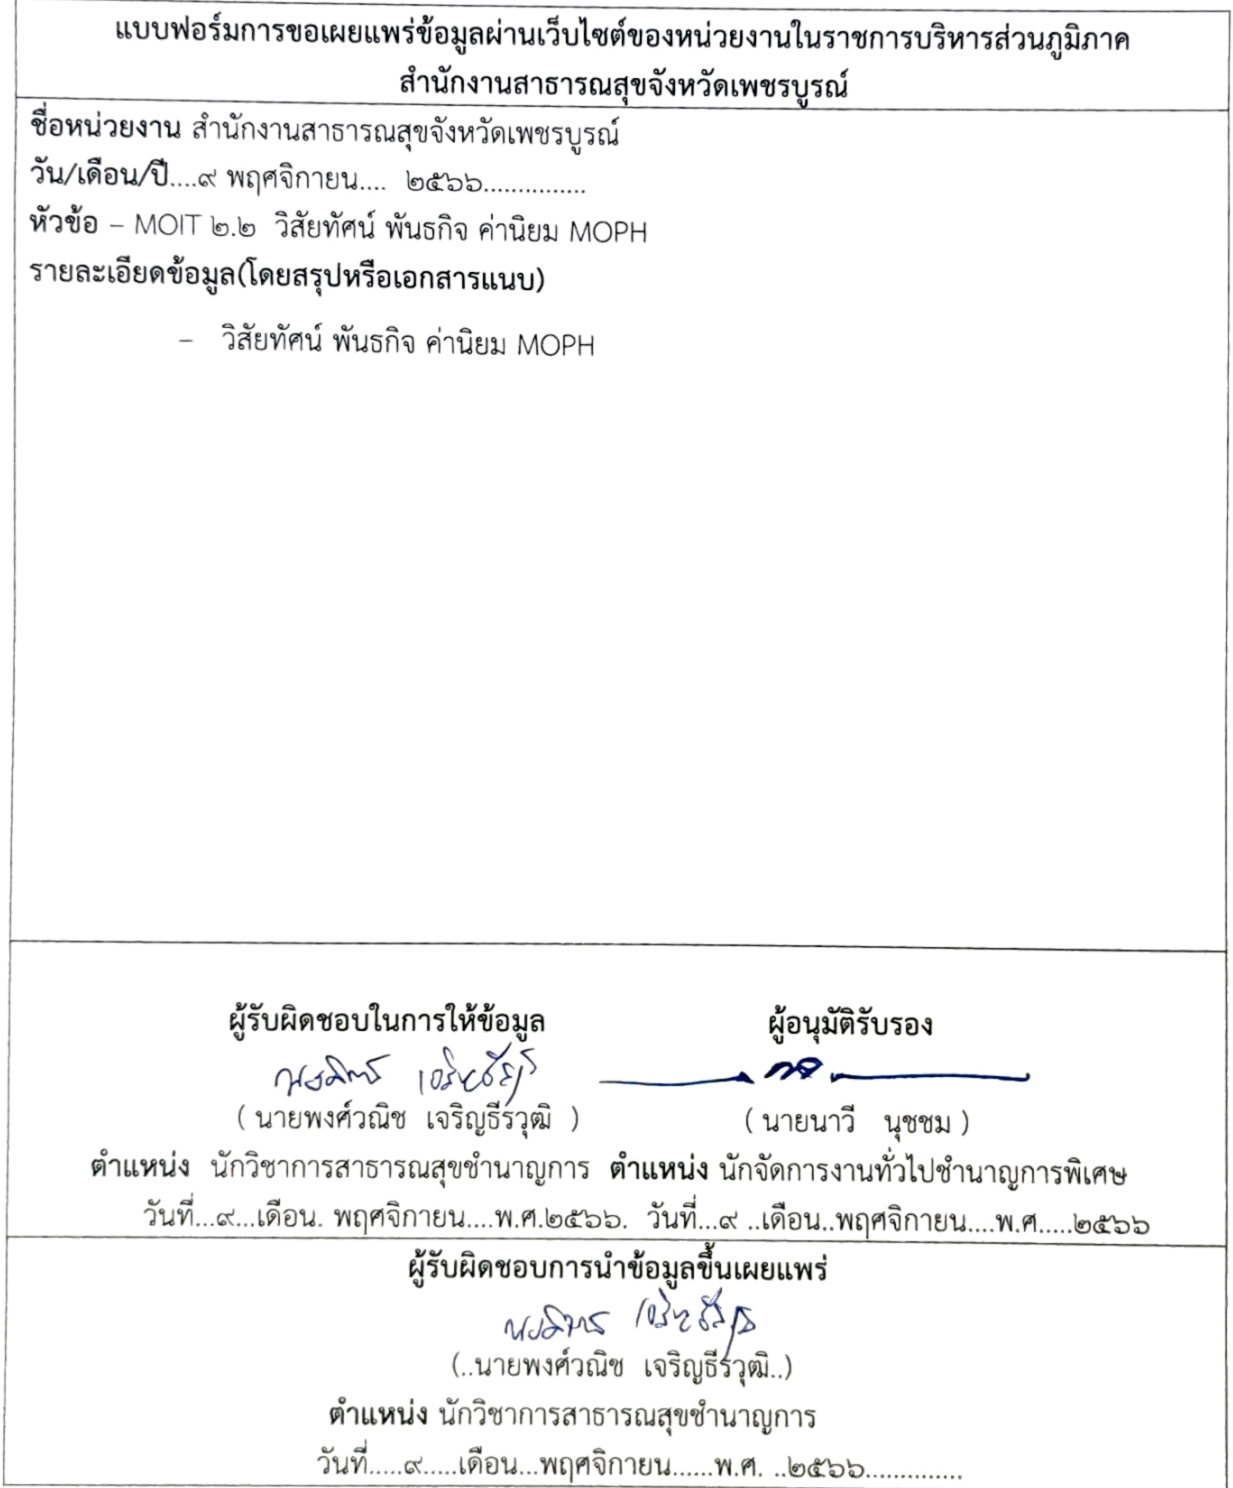 แบบฟอร์มการขอเผยแพร่ข้อมูลผ่านเว็บไซต์ของหน่วยงานในราชการบริหารส่วนภูมิภาค
สำนักงานสาธารณสุขจังหวัดเพชรบูรณ์
ชื่อหน่วยงาน สำนักงานสาธารณสุขจังหวัดเพชรบูรณ์
วัน/เดือน/ปี....๙ พฤศจิกายน.... ๒๕๖๖...............
หัวข้อ – MOIT ๒.๒ วิสัยทัศน์ พันธกิจ ค่านิยม MOPH
รายละเอียดข้อมูล(โดยสรุปหรือเอกสารแนบ)
– วิสัยทัศน์ พันธกิจ ค่านิยม MOPH
ผู้รับผิดชอบในการให้ข้อมูล ผู้อนุมัติรับรอง
( นายพงศ์วณิช เจริญธีรวุฒิ ) ( นายนาวี นุชชม )
ตำแหน่ง นักวิชาการสาธารณสุขชำนาญการ ตำแหน่ง นักจัดการงานทั่วไปชำนาญการพิเศษ
วันที่...๙...เดือน. พฤศจิกายน....พ.ศ.๒๕๖๖. วันที่...๙ ..เดือน..พฤศจิกายน....พ.ศ.....๒๕๖๖
ผู้รับผิดชอบการนำข้อมูลขึ้นเผยแพร่
(..นายพงศ์วณิช เจริญธีรวุฒิ..)
ตำแหน่ง นักวิชาการสาธารณสุขชำนาญการ
วันที่.....๙.....เดือน...พฤศจิกายน......พ.ศ. ..๒๕๖๖.............